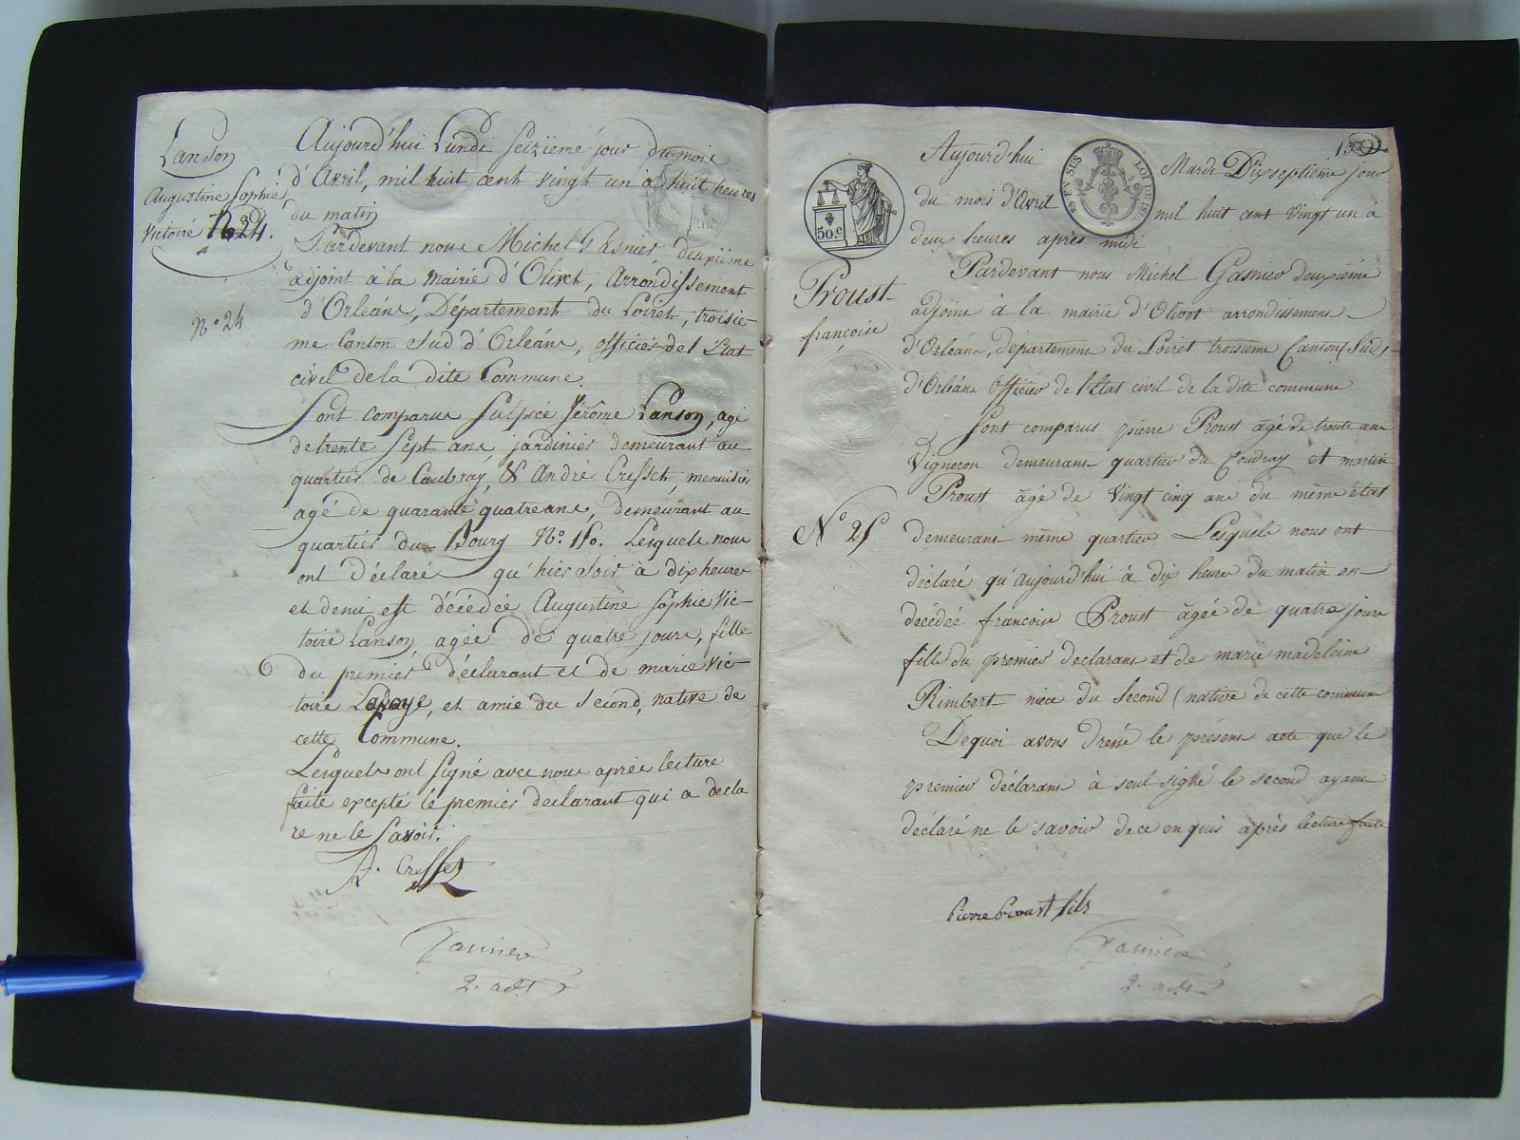 Lanson
Augustine Sophie
Victoire
N° 24
Aujourd'hui Lundi seizième jour du mois
d'Avril, mil huit cent vingt un à huit heures
du matin
Pardevant nous Michel Gasnier, deuxième
adjoint à la mairie d'Olivet, Arrondissement
d'Orléans, Département du Loiret, troisie-
me Canton Sud d'Orléans, officier de l'Etat
civil de la dite Commune.
Sont comparus Sulpice Jérôme Lanson, agé
de trente sept ans, jardinier demeurant au
quartier de Caubray, & André Cresset, menuisier
agé de quarante quatre ans, demeurant au
quartier du Bourg N°. 110. Lesquels nous
ont déclaré qu'hier soir à dix heures
et demi est décédée Augustine Sophie Vic-
toire Lanson, agée de quatre jours, fille
du premier déclarant et de marie Vic-
toire et amie du second, native de
cette Commune.
Lesquels ont signé avec nous après lecture
faite excepté le premier declarant qui a decla
ré ne le savoir.
A. Cresset
Gasnier
2. adt
Proust
françoise
N° 25
50 c
Aujourd'hui Mardi Dixseptième jour
du mois d'Avril mil huit cent vingt un à
deux heures après midi
Pardevant nous Michel Gasnier deuxième
adjoint à la mairie d'Olivet arrondissement
d'Orléans, département du Loiret troisième Canton Sud
d'Orléans officier de l'Etat civil de la dite commune
Sont comparus pierre Proust âgé de trente ans
Vigneron demeurant quartier du Coudray et martin
Proust âgé de vingt cinq ans du même état
demeurant même quartier Lesquels nous ont
déclaré qu'aujourd'hui à dix heures du matin est
décédée françoise Proust âgée de quatre jours
fille du premier declarant et de marie madeleine
Rimbert nièce du second (native de cette commune
Dequoi avons dressé le présent acte que le
premier déclarant à seul signé le second ayant
déclaré ne le savoir de ce enquis après lecture faite
Pierre Proust fils
Gasnier
2. adt